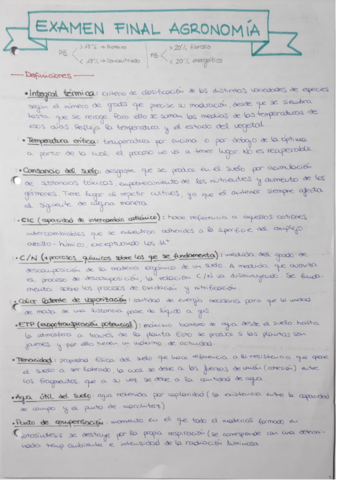 EXAMEN FINAL AGRONOMÍA
Definiciones
• Integral térmica: criterio de clasificación de las distintas variedades de especies
según el número de grados que precise su maduración, desde que se siembra
hasta que se recoge. Para ello se suman las medias de las temperaturas de
esos días. Refleja la temperatura y el estado del vegetal.
• Temperatura crítica: temperatura por encima o por debajo de la óptima
a partir de la cual el proceso no va a tener lugar. No es recuperable.
• Cansancio del suelo: desgaste que se produce en el suelo por acumulación
de sustancias tóxicas, empobrecimiento de los nutrientes y aumento de los
gérmenes. Tiene lugar al repetir cultivos, ya que el anterior siempre afecta
al siguiente de alguna manera.
• CIC (capacidad de intercambio catiónico): hace referencia a aquellos cationes
intercambiables que se encuentran adheridos a la superficie del complejo
arcillo-húmico, exceptuando los H⁺
• C/N (+ procesos químicos sobre los que se fundamenta): medida del grado de
descomposición de la materia orgánica de un suelo. A medida que avanza
el proceso de descomposición, la relación C/N va disminuyendo. Se funda-
menta sobre los procesos de oxidación y nitrificación.
• Calor latente de vaporización: cantidad de energía necesaria para que la unidad
de masa de una sustancia pase de líquido a gas.
• ETP (evapotranspiración potencial): máximo bombeo de agua desde el suelo hasta
la atmósfera a través de la planta. Esto se produce si las plantas son
jóvenes y por ello tienen un máximo de actividad.
• Tenacidad: propiedad física del suelo que hace referencia a la resistencia que opone
el suelo a ser labrado, la cual se debe a las fuerzas de unión (cohesión) entre
los fragmentos que a su vez se debe a la cantidad de agua.
• Agua útil del suelo: agua retenida por capilaridad (la existencia entre la capacidad
de campo y el punto de marchitez)
• Punto de compensación: momento en el que todo el material formado en
fotosíntesis se destruye por la propia respiración (se corresponde con una determi-
nada temp. ambiente e intensidad de la radiación luminosa.